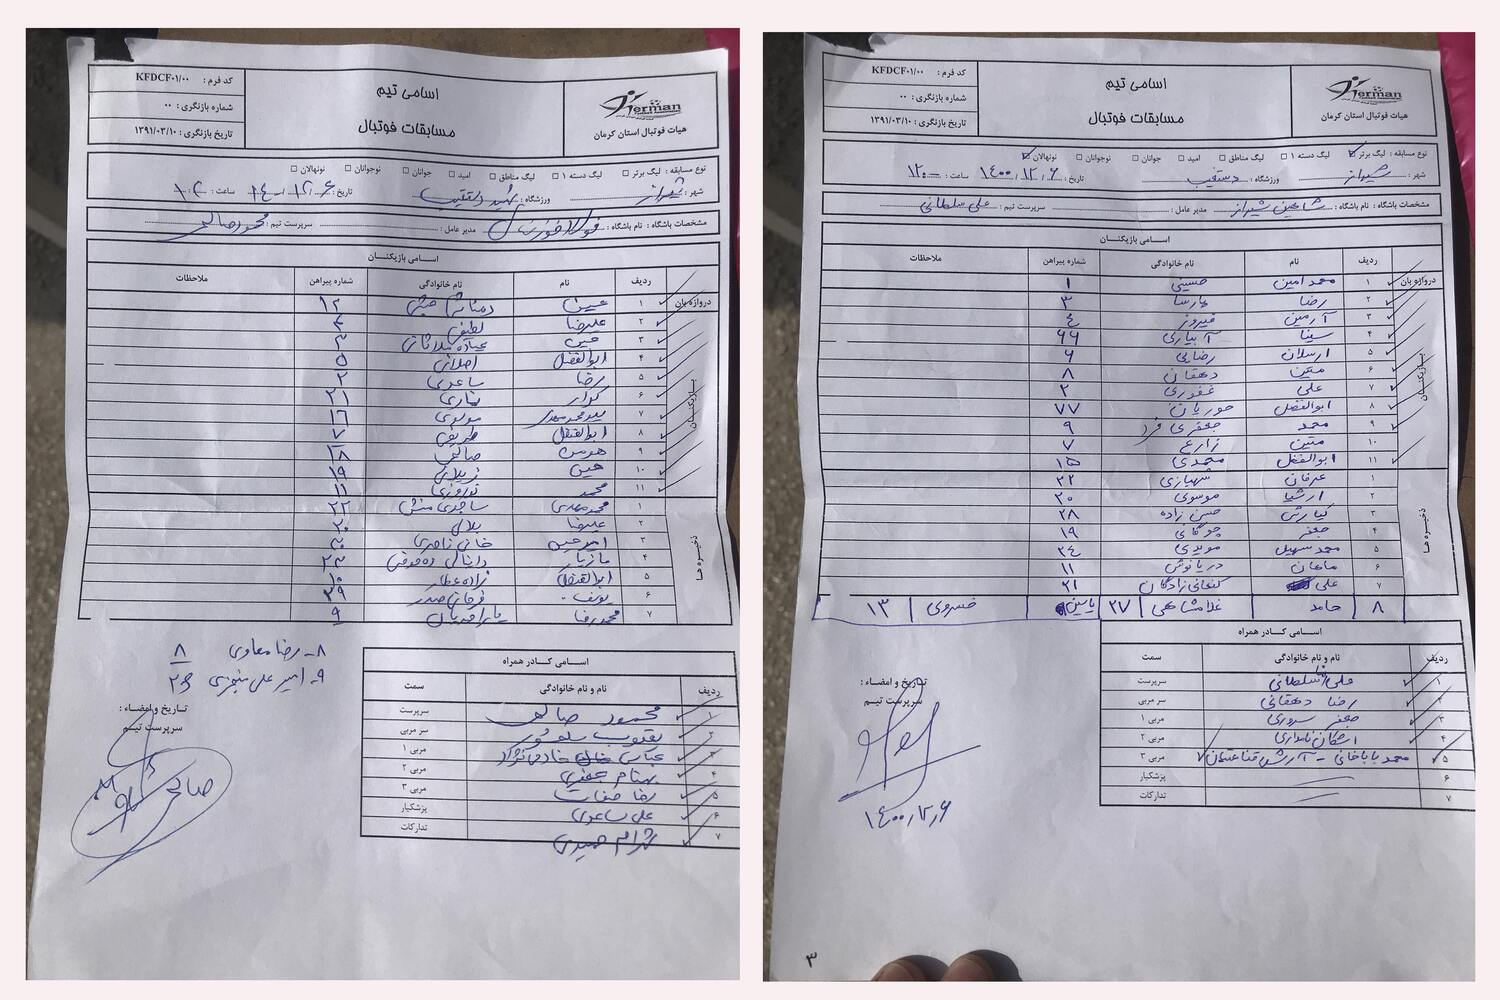 Kerman
هیات فوتبال استان کرمان
اسامی تیم
مسابقات فوتبال
کد فرم : KFDCF۰۱/۰۰
شماره بازنگری : ۰۰
تاریخ بازنگری : ۱۳۹۱/۰۳/۱۰
نوع مسابقه : لیگ برتر لیگ دسته ۱ لیگ مناطق امید جوانان نوجوانان نونهالان
شهر : شیراز ورزشگاه : شهید دستغیب تاریخ : ۱۴۰۰/۱۲/۶ ساعت :
مشخصات باشگاه : نام باشگاه : فولاد خوزستان مدیر عامل : سرپرست تیم : محمود صالحی
اسـامی بازیکنـان
ردیف نام نام خانوادگی شماره پیراهن ملاحظات
دروازه بان
۱ ۱۲
بـازیکنـان
۲ علیرضا لطیفی ۴
۳ ۳
۴ ابوالفضل اصلانی ۵
۵ رضا ساعدی ۲
۶ ۲۱
۷ سید محمد مهدی موسوی ۱۶
۸ ابوالفضل ۷
۹ صالحی ۲۸
۱۰ ۱۹
۱۱ محمد نوروزی ۱۱
ذخیـره هـا
۱ محمد مهدی ساجدی منش ۲۲
۲ علیرضا بلالی ۲۰
۳ امیرحسین خانی ناصری
۴ مازیار
۵ ابوالفضل زاده عطار ۱۰
۶ یوسف
۷ محمدرضا ۹
۸- رضا معاوی ۸
۹- امیر علی
اسـامی کـادر همراه
ردیف نام و نام خانوادگی سمت
۱ محمود صالحی سرپرست
۲ یعقوب سر مربی
۳ عباس خادمی نژاد مربی ۱
۴ بهنام جعفری مربی ۲
۵ رضا صفات مربی ۳
۶ علی ساعدی پزشکیار
۷ شهرام حمیدی تدارکات
تـاریخ و امضـاء :
سرپرست تیـم
صالحی
Kerman
هیات فوتبال استان کرمان
اسامی تیم
مسابقات فوتبال
کد فرم : KFDCF۰۱/۰۰
شماره بازنگری : ۰۰
تاریخ بازنگری : ۱۳۹۱/۰۳/۱۰
نوع مسابقه : لیگ برتر لیگ دسته ۱ لیگ مناطق امید جوانان نوجوانان نونهالان
شهر : شیراز ورزشگاه : دستغیب تاریخ : ۱۴۰۰/۱۲/۶ ساعت :
مشخصات باشگاه : نام باشگاه : شاهین شیراز مدیر عامل : سرپرست تیم : علی سلطانی
اسـامی بازیکنـان
ردیف نام نام خانوادگی شماره پیراهن ملاحظات
دروازه بان
۱ محمد امین حسینی ۱
بـازیکنـان
۲ رضا پارسا ۳
۳ آرمین فیروز ۴
۴ سینا آبیاری ۶۶
۵ ارسلان رضایی ۶
۶ متین دهقان ۸
۷ علی غفوری ۲
۸ ابوالفضل حوریان ۷۷
۹ محمد جعفری فرد ۹
۱۰ متین زارع ۷
۱۱ ابوالفضل محمدی ۱۵
ذخیـره هـا
۱ عرفان شهبازی ۲۲
۲ ارشیا موسوی ۲۰
۳ کیارش حسن زاده ۲۸
۴ جعفر چوگانی ۱۹
۵ محمد سهیل مویدی ۲۴
۶ ماهان دریانوش ۱۱
۷ علی کنعانی زادگان ۲۱
۸ حامد غلامشاهی ۲۷ یاسین خسروی ۱۳
اسـامی کـادر همراه
ردیف نام و نام خانوادگی سمت
۱ علی سلطانی سرپرست
۲ رضا دهقانی سر مربی
۳ جعفر سروری مربی ۱
۴ اشکان نامداری مربی ۲
۵ محمد باباخانی - آرش قناعتیان مربی ۳
۶ پزشکیار
۷ تدارکات
تـاریخ و امضـاء :
سرپرست تیـم
۱۴۰۰,۱۲,۶
۳